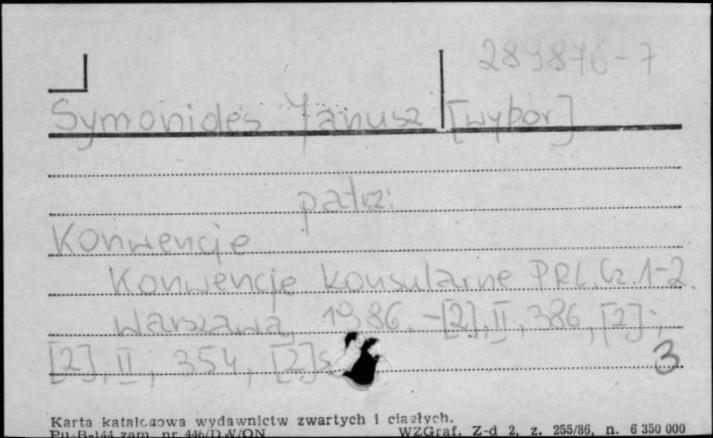 289876-7
Symonides Janusz [wybór]
patrz:
Konwencje
Konwencje konsularne PRL. Cz. 1-2.
Warszawa, 1986. -[2], II, 386, [2];
[2], II, 354, [2]s
3
Karta katalogowa wydawnictw zwartych i ciągłych.
Pu-B-144 zam. nr 446/D W/ON WZGraf. Z-d 2, z. 255/86, n. 6 350 000